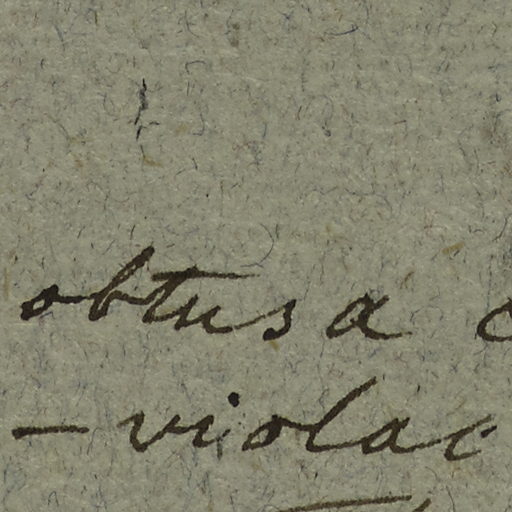 obtusa
- violac